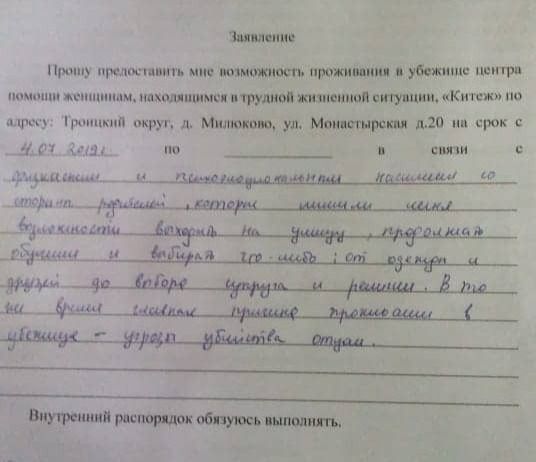 Заявление
Прошу предоставить мне возможность проживания в убежище центра
помощи женщинам, находящимся в трудной жизненной ситуации, «Китеж» по
адресу: Троицкий округ, д. Милюково, ул. Монастырская д.20 на срок с
4.07.2019г. по в связи с
физическим и психоэмоциональным насилием со
стороны родителей, которые лишили меня
возможности выходить на улицу, продолжать
обучение и выбирать что-либо: от одежды и
друзей до выбора супруга и религии. В то
же время главная причина проживания в
убежище – угрозы убийства отцом.
Внутренний распорядок обязуюсь выполнять.